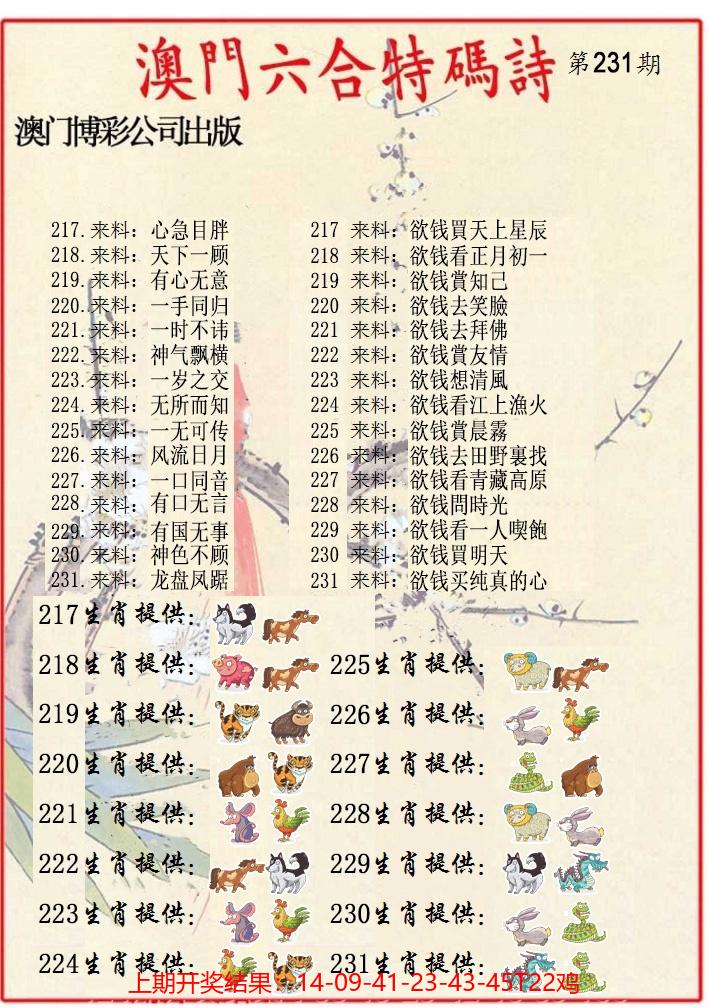 澳門六合特碼詩 第231期
澳门博彩公司出版
217.来料：心急目胖
218.来料：天下一顾
219.来料：有心无意
220.来料：一手同归
221.来料：一时不讳
222.来料：神气飘横
223.来料：一岁之交
224.来料：无所而知
225.来料：一无可传
226.来料：风流日月
227.来料：一口同音
228.来料：有口无言
229.来料：有国无事
230.来料：神色不顾
231.来料：龙盘凤踞
217 来料：欲钱買天上星辰
218 来料：欲钱看正月初一
219 来料：欲钱賞知己
220 来料：欲钱去笑臉
221 来料：欲钱去拜佛
222 来料：欲钱賞友情
223 来料：欲钱想清風
224 来料：欲钱看江上漁火
225 来料：欲钱賞晨霧
226 来料：欲钱去田野裏找
227 来料：欲钱看青藏高原
228 来料：欲钱問時光
229 来料：欲钱看一人喫飽
230 来料：欲钱買明天
231 来料：欲钱买纯真的心
217生肖提供：
218生肖提供：
219生肖提供：
220生肖提供：
221生肖提供：
222生肖提供：
223生肖提供：
224生肖提供：
225生肖提供：
226生肖提供：
227生肖提供：
228生肖提供：
229生肖提供：
230生肖提供：
231生肖提供：
上期开奖结果：14-09-41-23-43-45T22鸡